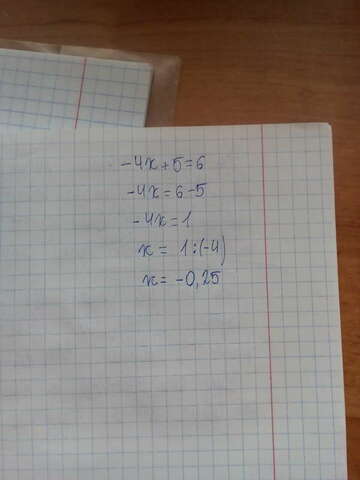 -4x+5=6
-4x=6-5
-4x=1
x = 1:(-4)
x = -0,25